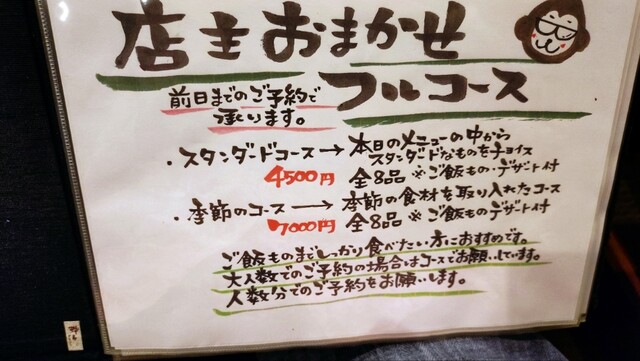 店主おまかせ
フルコース
前日までのご予約で
承ります。
・スタンダードコース→本日のメニューの中から
スタンダードなものをチョイス
4500円 全8品 ※ご飯もの・デザート付
・季節のコース→季節の食材を取り入れたコース
7000円 全8品 ※ご飯ものデザート付
ご飯ものまでしっかり食べたい方におすすめです。
大人数でのご予約の場合はコースでお願いしています。
人数分でのご予約をお願いします。